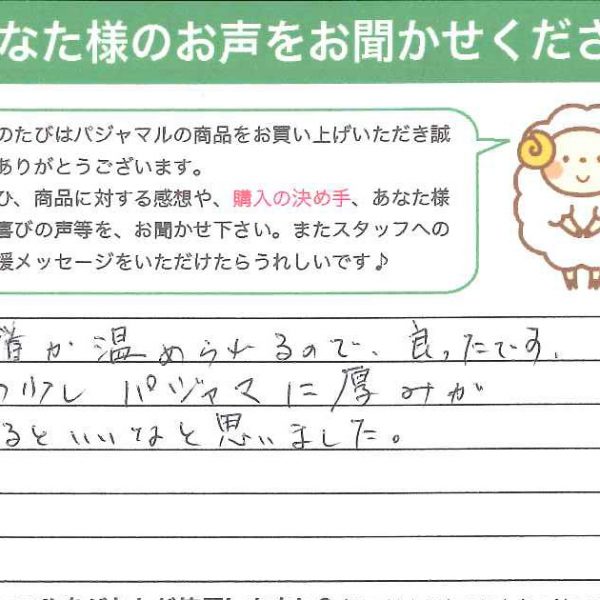 なた様のお声をお聞かせくださ
のたびはパジャマルの商品をお買い上げいただき誠
ありがとうございます。
ひ、商品に対する感想や、購入の決め手、あなた様
喜びの声等を、お聞かせ下さい。またスタッフへの
援メッセージをいただけたらうれしいです♪
首が温められるので、良ったです。
少し パジャマに厚みが
るといいなと思いました。